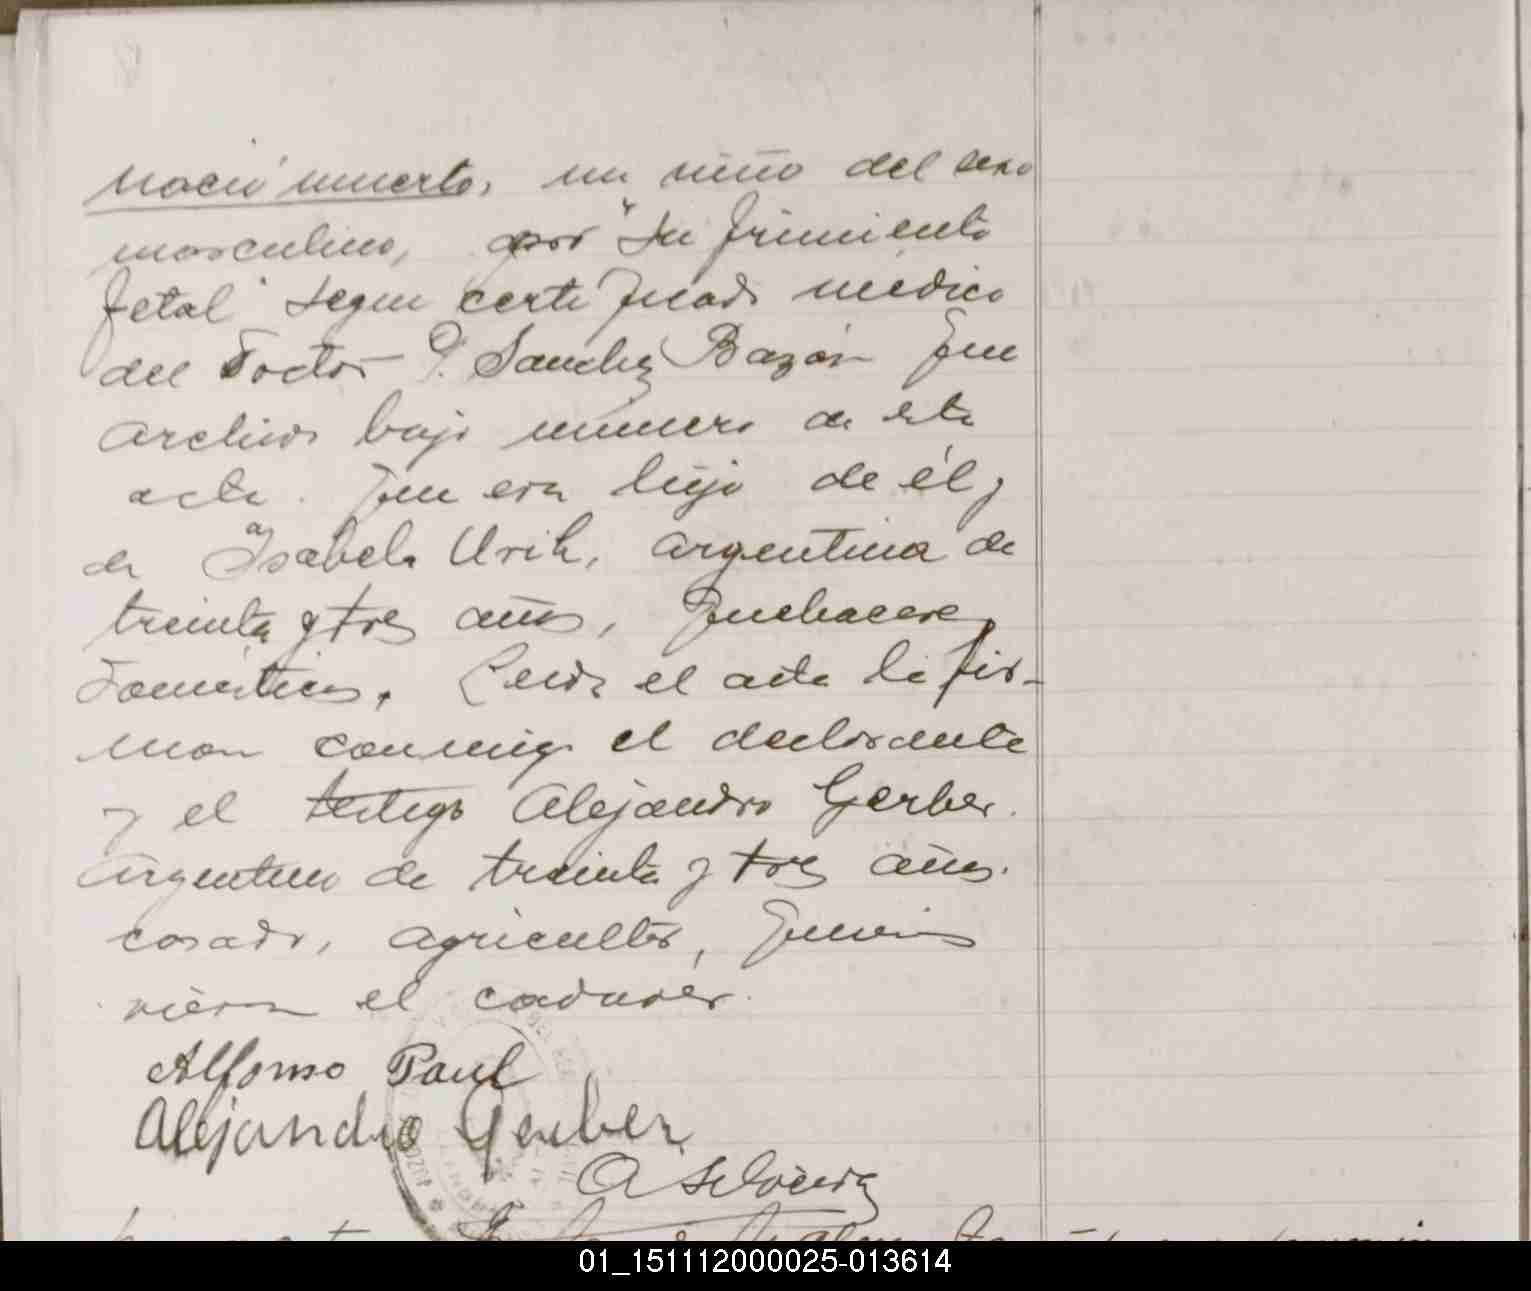 nació muerto, un niño del sexo
masculino, por "su frimiento
fetal" segun certificado médico
del Doctor P. Sanchez Bazán que
archivo bajo número de este
acta. Que era hijo de él y
de Isabela Urih, argentina de
treinta y tres años, quehaceres
domésticos. Leida el acta la fir-
man conmigo el declarante
y el testigo Alejandro Gerber.
argentino de treinta y tres años.
casado, agricultor, quienes
vieron el cadaver.
Alfonso Paul
Alejandro Gerber
01_151112000025-013614